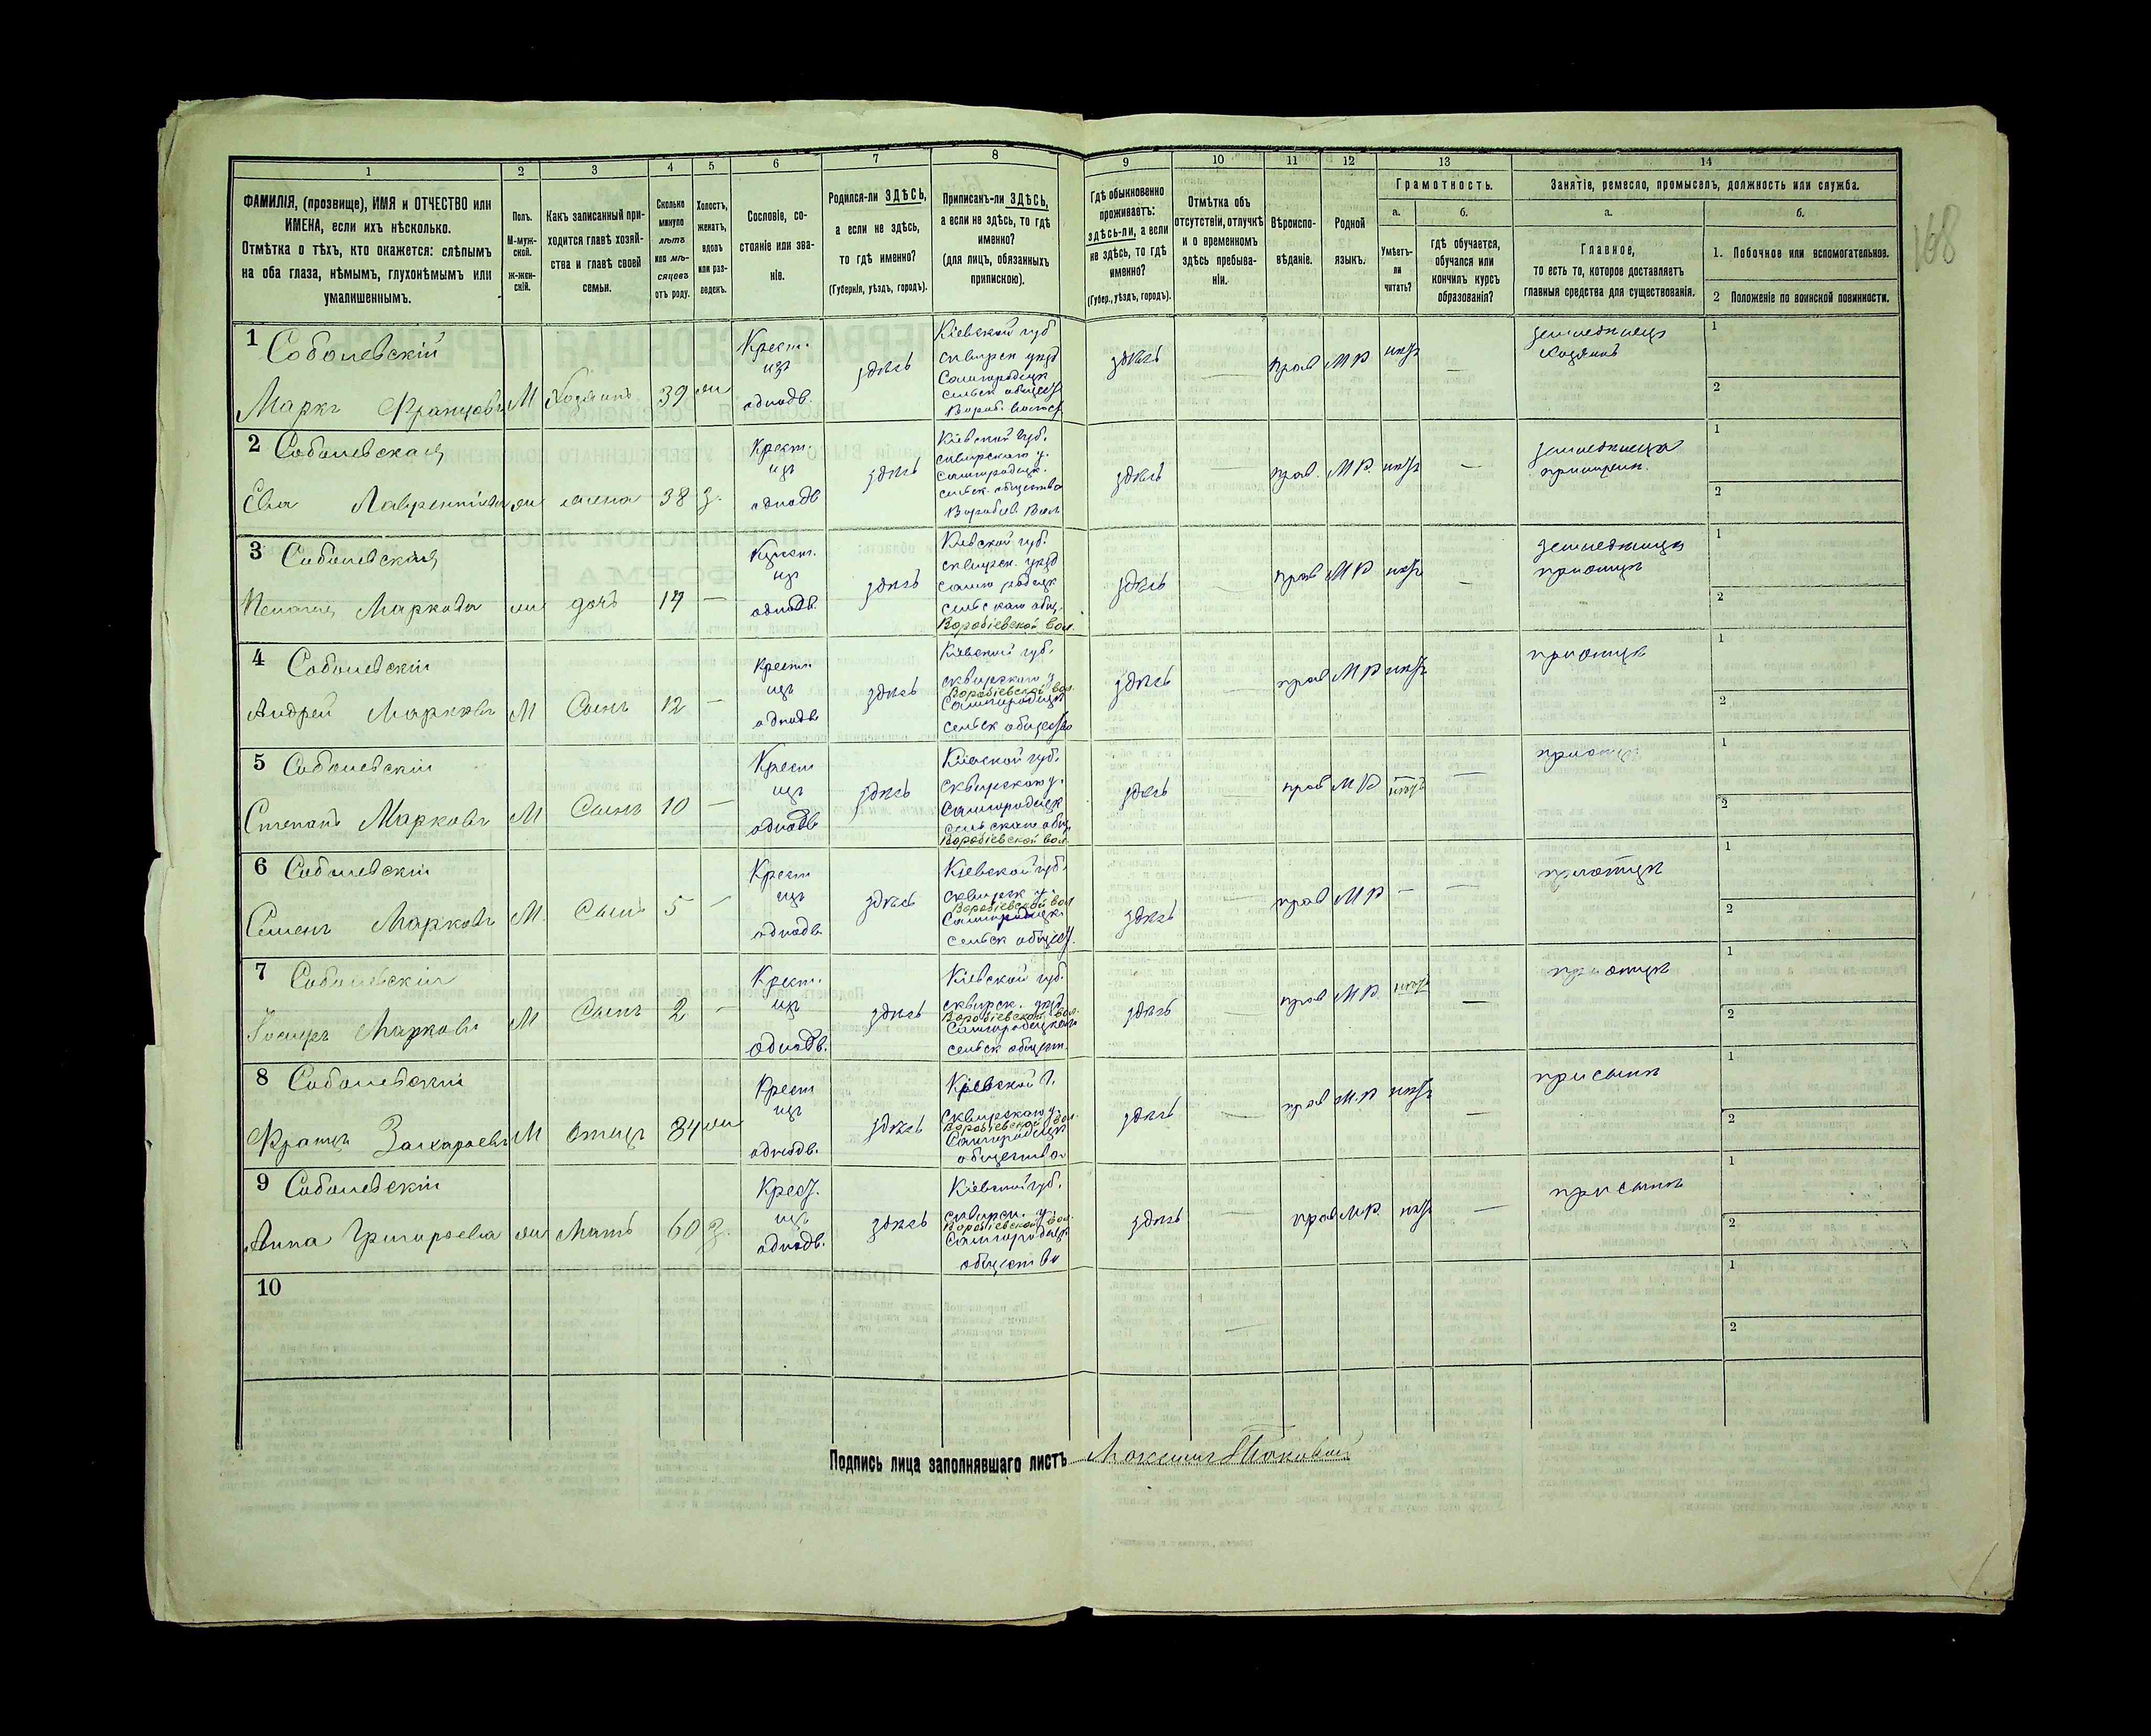 168
1 2 3 4 5 6 7 8 9 10 11 12 13 14
ФАМИЛІЯ, (прозвище), ИМЯ и ОТЧЕСТВО или
ИМЕНА, если ихъ нѣсколько.
Отмѣтка о тѣхъ, кто окажется: слѣпымъ
на оба глаза, нѣмымъ, глухонѣмымъ или
умалишеннымъ.
Полъ.
М-муж-
ской.
Ж-жен-
скій.
Какъ записанный при-
ходится главѣ хозяй-
ства и главѣ своей
семьи.
Сколько
минуло
лѣтъ
или мѣ-
сяцевъ
отъ роду.
Холостъ,
женатъ,
вдовъ
или раз-
веденъ.
Сословіе, со-
стояніе или зва-
ніе.
Родился-ли ЗДѢСЬ,
а если не здѣсь,
то гдѣ именно?
(Губернія, уѣздъ, городъ).
Приписанъ-ли ЗДѢСЬ,
а если не здѣсь, то гдѣ
именно?
(для лицъ, обязанныхъ
припискою).
Гдѣ обыкновенно
проживаетъ:
здѣсь-ли, а если
не здѣсь, то гдѣ
именно?
(Губер., уѣздъ, городъ).
Отмѣтка объ
отсутствіи, отлучкѣ
и о временномъ
здѣсь пребыва-
ніи.
Вѣроиспо-
вѣданіе.
Родной
языкъ.
Грамотность.
а.
Умѣетъ-
ли
читать?
б.
гдѣ обучается,
обучался или
кончилъ курсъ
образованія?
Занятіе, ремесло, промыселъ, должность или служба.
а.
Главное,
то есть то, которое доставляетъ
главныя средства для существованія.
б.
1. Побочное или вспомогательное.
2 Положеніе по воинской повинности.
1 Соболевскій
Маркъ Францовъ М Хозяинъ 39 ж
Крест.
изъ
однодв.
здѣсь
Кіевской губ
сквирск уѣзд
Самгородецк
сельск общест
Вороб. волост
здѣсь — прав М Р нѣт —
земледѣлецъ
хозяинъ
1
2
2 Соболевская
Ева Лаврентіева ж жена 38 з.
Крест.
изъ
однодв
здѣсь
Кіевской губ.
сквирскаго у.
Самгородецк.
сельск. общества
Воробіев. Вол
здѣсь — прав. М Р. нѣт —
1
2
3 Соболевская
Маркова ж дочь
Крест.
изъ
однодв.
здѣсь
Кіевской губ.
сквирск. уѣзд
Самгородецк
сельскаго общ.
Воробіевской вол.
здѣсь прав М Р нѣт —
при отцѣ
1
2
4 Соболевскій
Андрей Марковъ М Сынъ 12 —
Крестн
изъ
однодв
здѣсь
Кіевской губ.
сквирскаго у
Воробіевской вол.
Самгородецк
сельск общества
здѣсь — прав М Р нѣт
при отцѣ
1
2
5 Соболевскій
Степанъ Марковъ М Сынъ 10 —
Крест
изъ
однодв
здѣсь
Кіевской губ.
Сквирскаго у.
Самгородецк
сельскаго общ.
Воробіевской вол.
здѣсь — прав М Р нѣт —
при отцѣ
1
2
6 Соболевскій
Семенъ Марковъ М. Сынъ 5 —
Крест
изъ
однодв.
здѣсь
Кіевской губ.
Сквирск у.
Воробіевской вол
Самгородецк.
сельск общест.
здѣсь — прав М Р — —
при отцѣ
1
2
7 Соболевскій
Марковъ М Сынъ 2 —
Крест.
изъ
однодв.
здѣсь
Кіевской губ.
сквирск. уѣзд.
Воробіевской вол.
Самгородецкаго
сельск общест.
здѣсь — прав М Р. нѣт —
при отцѣ
1
2
8 Соболевскій
Францъ Захарьевъ М отецъ 84 ж
Крест
изъ
однодв.
здѣсь
Кіевской г.
Сквирскаго у.
Воробіевской вол.
Самгородецк
общества
здѣсь — прав М.Р нѣт —
при сынѣ
1
2
9 Соболевскій
Анна Григорьева ж Мать 60 з.
Крест.
изъ
однодв.
здѣсь
Кіевской губ.
сквирск. у.
Воробіевской вол.
Самгородецк
общества
здѣсь — прав М Р. нѣт —
при сынѣ
1
2
10
1
2
Подпись лица заполнявшаго листъ